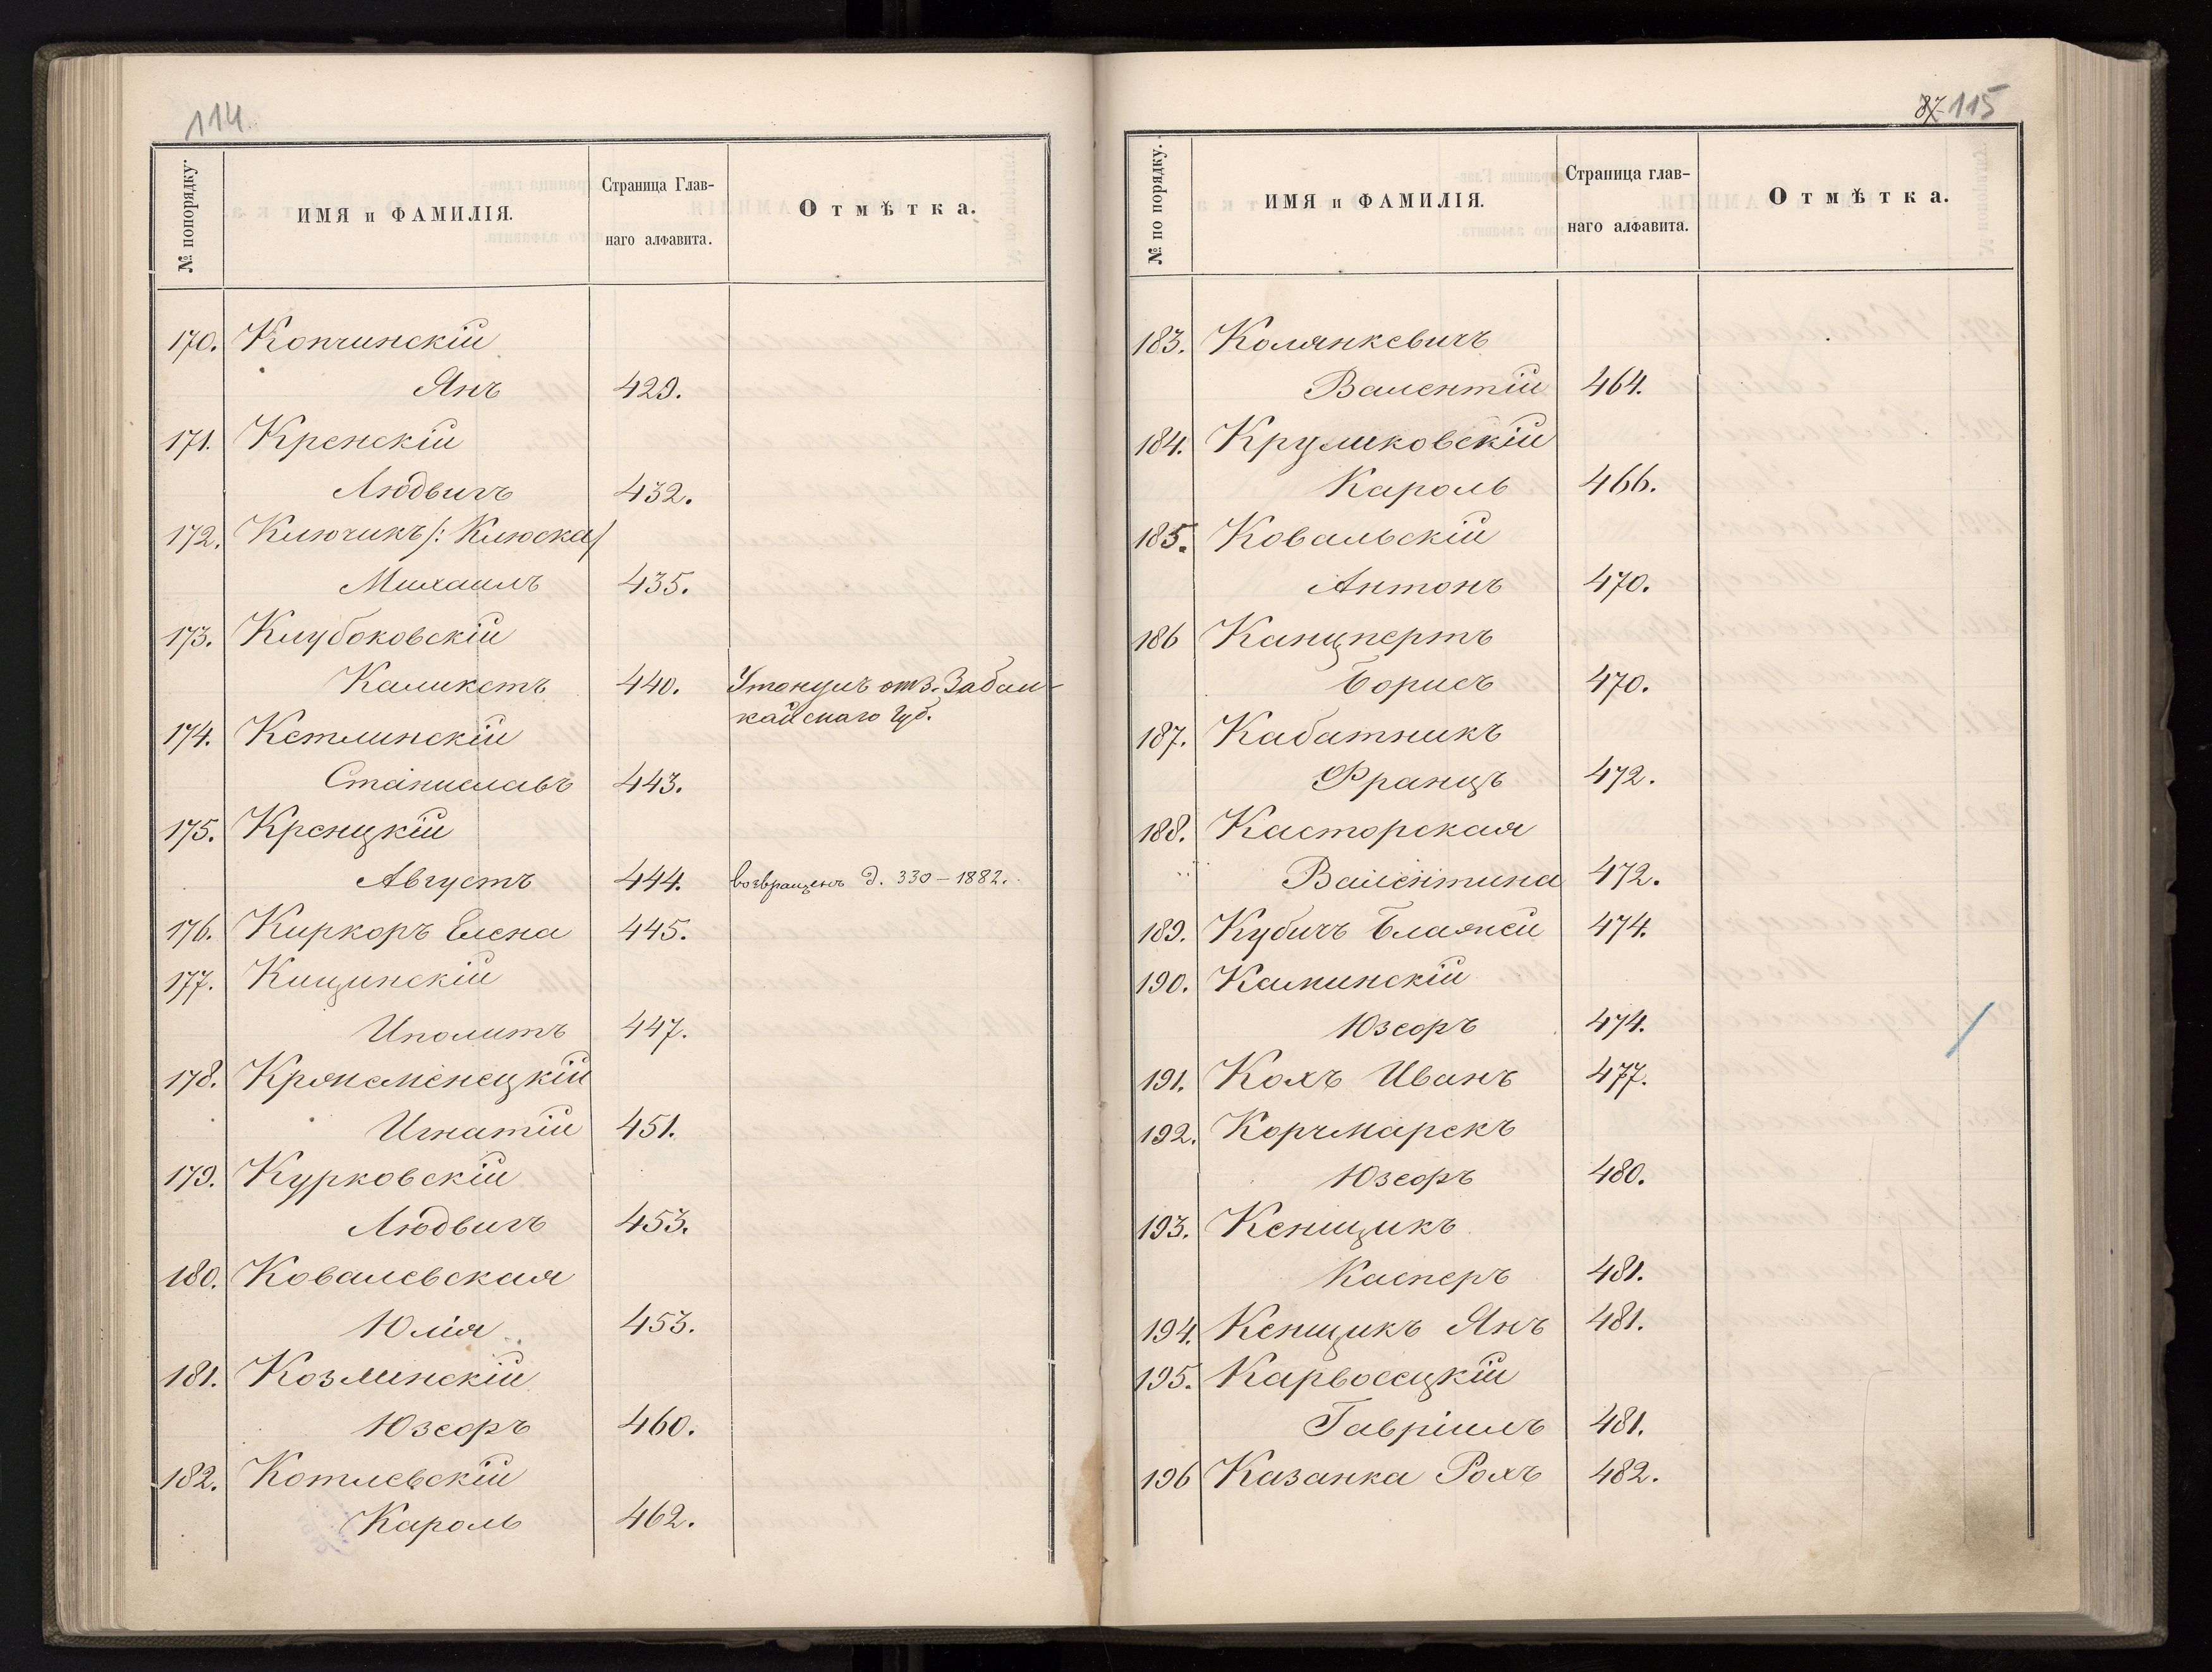 114.
№ попорядку.
ИМЯ и ФАМИЛІЯ.
Страница Глав-
наго алфавита.
Отмѣтка.
170. Копчинскій
Янъ 429.
171. Кренскій
Людвигъ 432.
172. Ключикъ /: Клюска/
Михаилъ 435.
173. Клубоковскій
Каликстъ 440. Утонулъ
174. Кетлинскій
Станиславъ 443.
175. Креницкій
Августъ 444. возвращенъ д. 330 – 1882.
176. Киркоръ Елена 445.
177. Кищинскій
Иполитъ 447.
178.
Игнатій 451.
179. Курковскій
Людвигъ 453.
180. Ковалевская
Юлія 453.
181. Козминскій
Юзефъ 460.
182. Котлевскій
Кароль 462.
87 115
№ по порядку.
ИМЯ и ФАМИЛІЯ.
Страница глав-
наго алфавита.
Отмѣтка.
183. Колянкевичъ
Валентій 464.
184. Круликовскій
Кароль 466.
185. Ковальскій
Антонъ 470.
186 Канцпертъ
Борисъ 470.
187. Кабатникъ
Францъ 472.
188. Касторская
Валентина 472.
189. Кубичъ Блажей 474.
190. Каминскій
Юзефъ 474.
191. Кохъ Иванъ 477.
192. Корчмарекъ
Юзефъ 480.
193. Кенщикъ
Касперъ 481.
194. Кенщикъ Янъ 481.
195. Карвосецкій
Гавріилъ 481.
196 Казанка Рохъ 482.